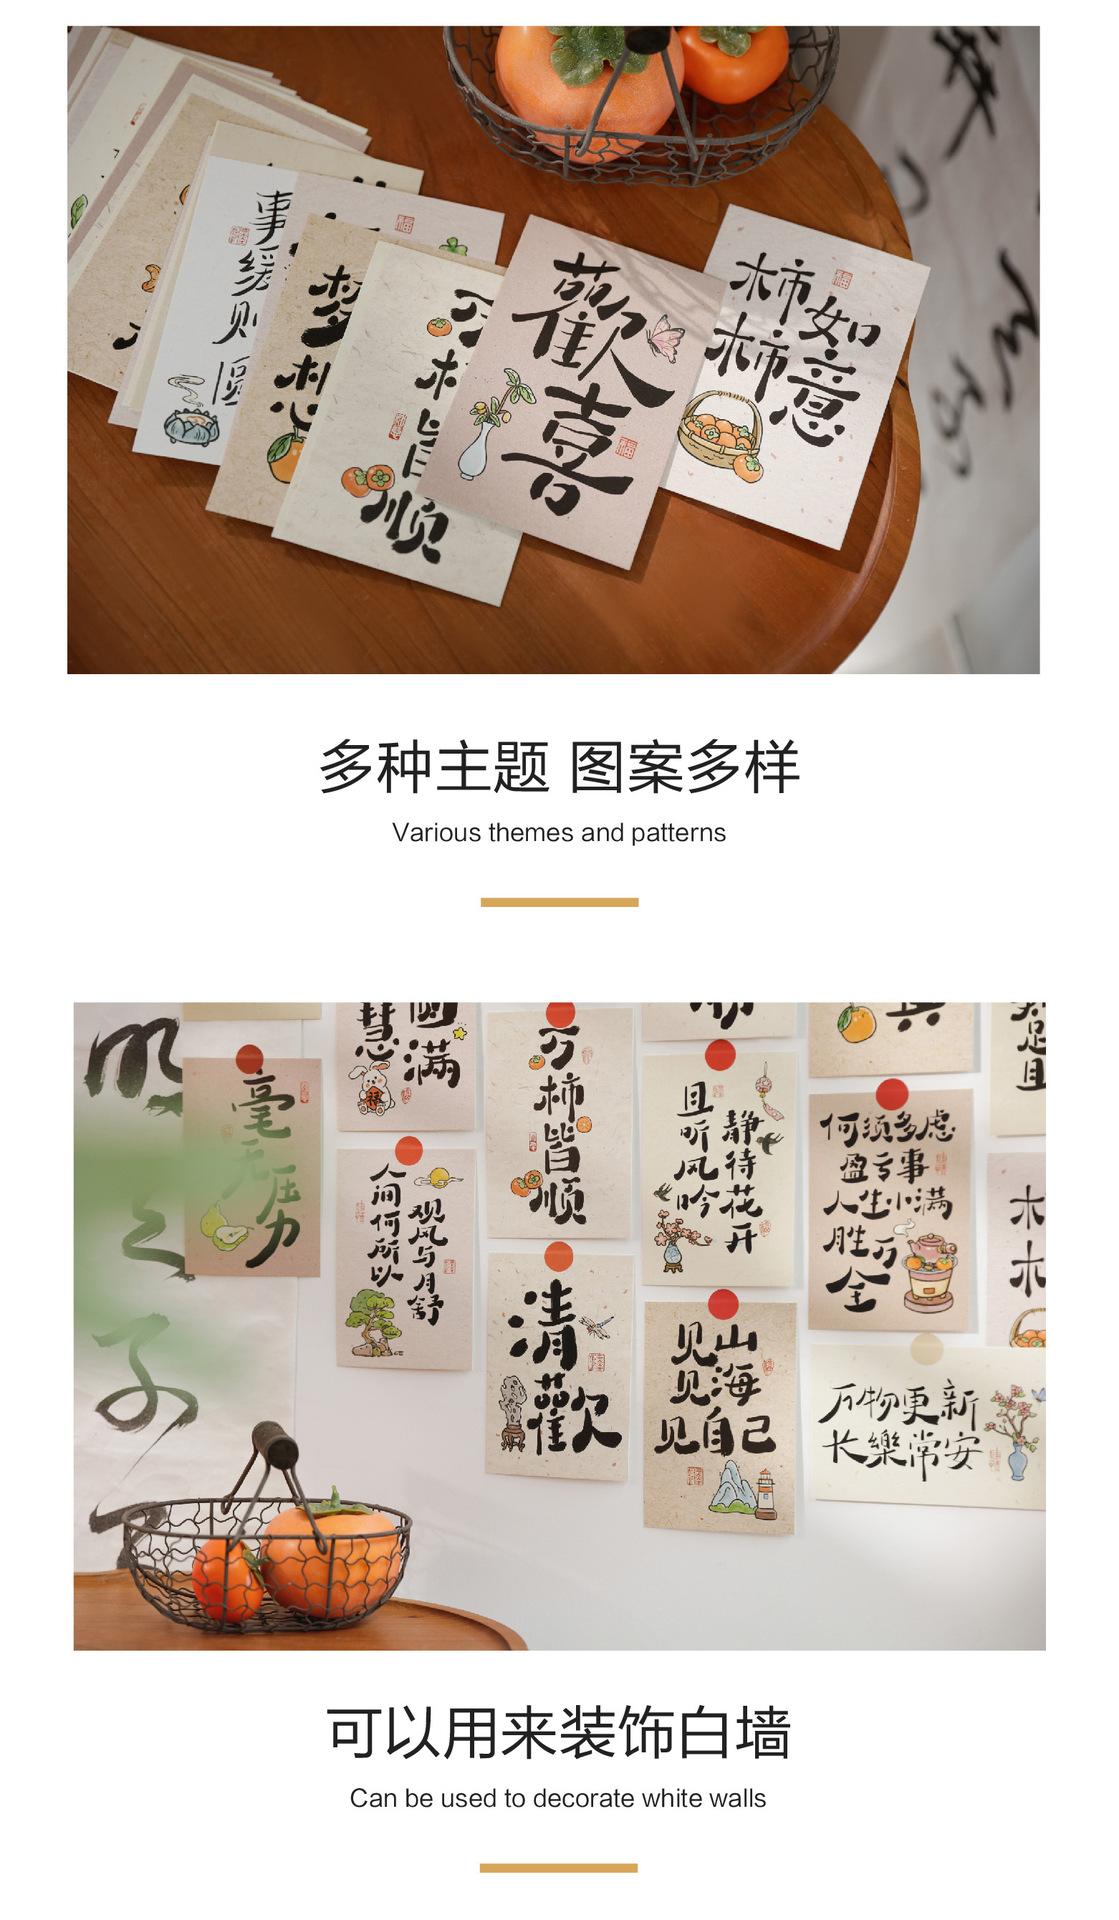 事缓则圆
梦想
万柿皆顺
歡喜
柿柿如意
多种主题 图案多样
Various themes and patterns
毫无压力
慧
圆满
人间何所以
观风与月舒
万柿皆顺
清歡
且听风吟
静待花开
见山
见海
见自己
何须多虑
盈亏事
人生小满
胜万
全
万物更新
长樂常安
可以用来装饰白墙
Can be used to decorate white walls